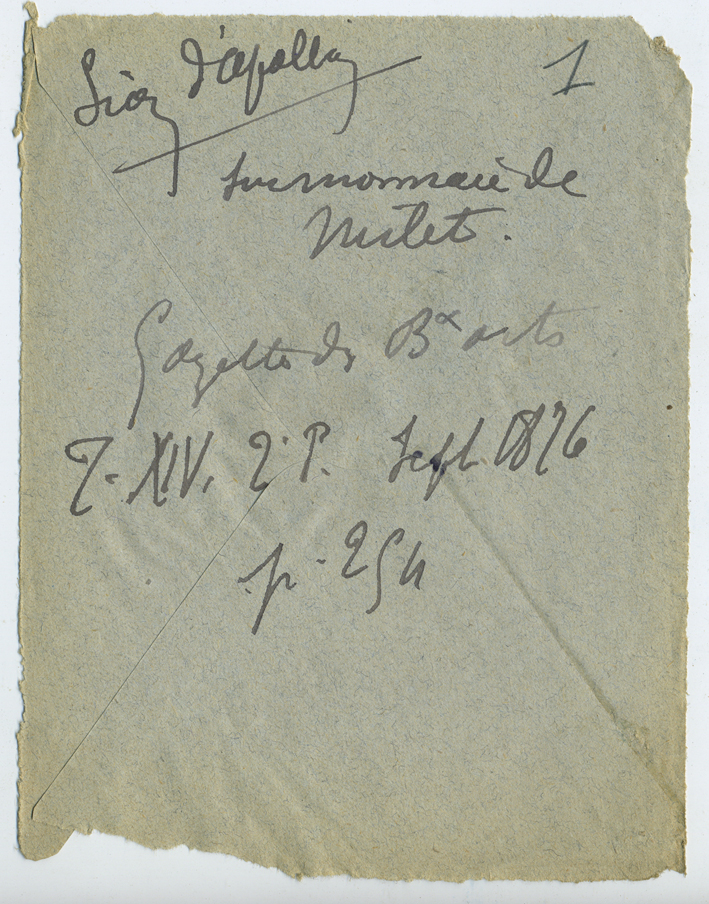 Lion d'apollon
1
sur monnaie de
Milet.
Gazette des Bx arts
T. XIV. 2e P. Sept 1876
p. 254